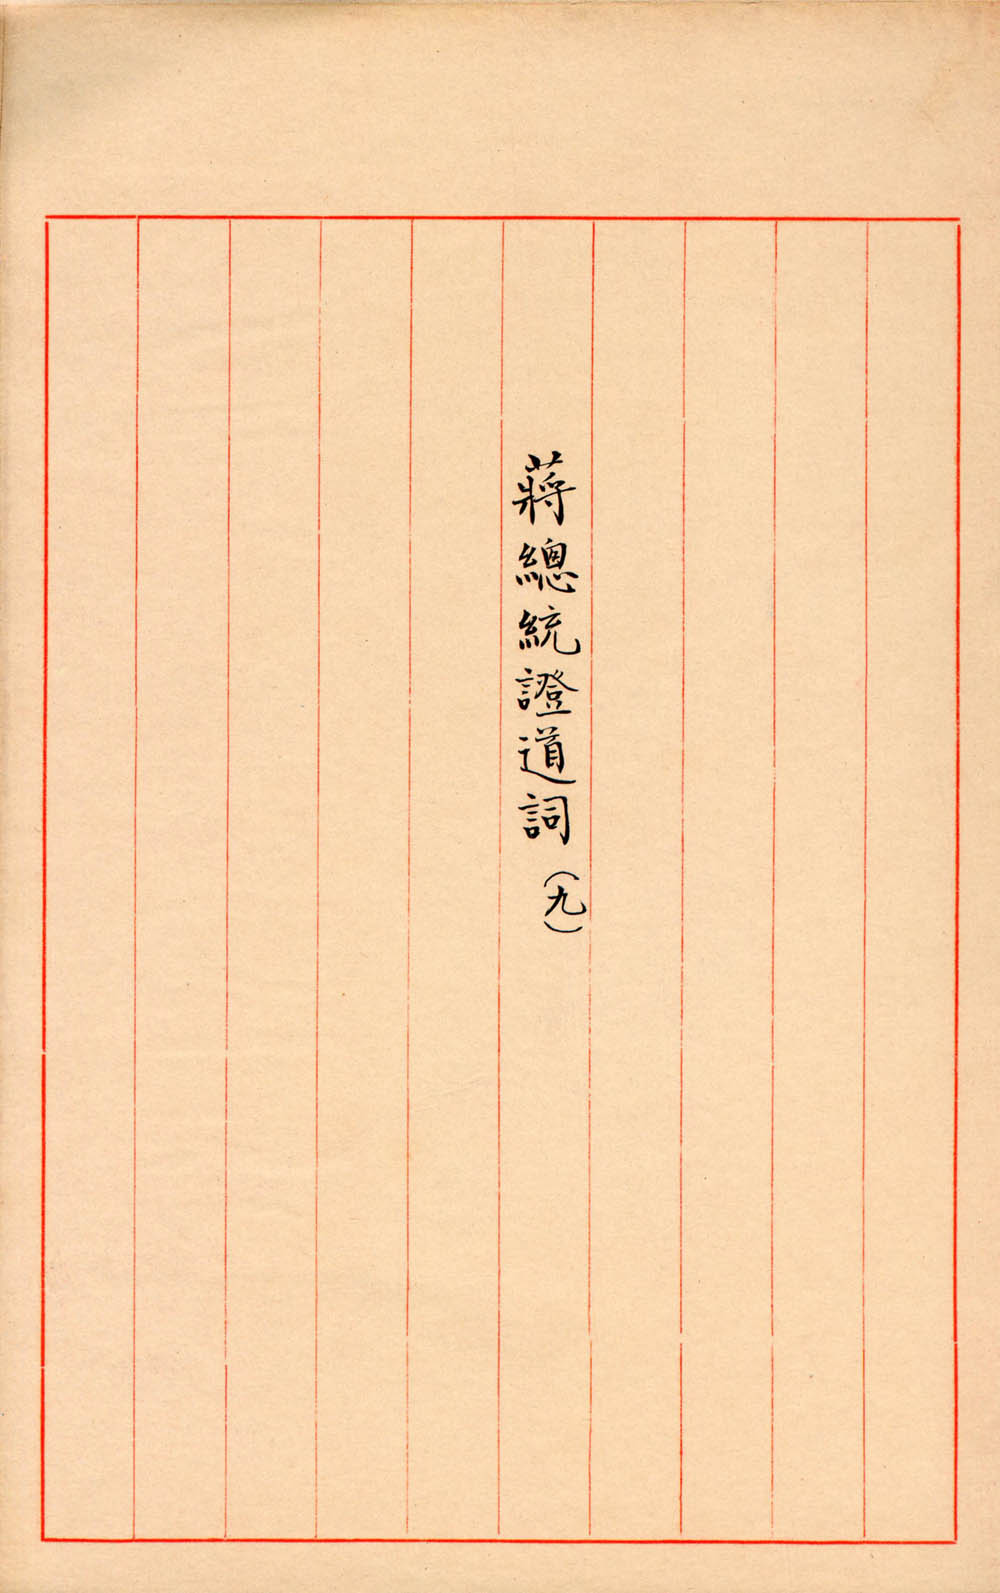 蔣總統證道詞（九）